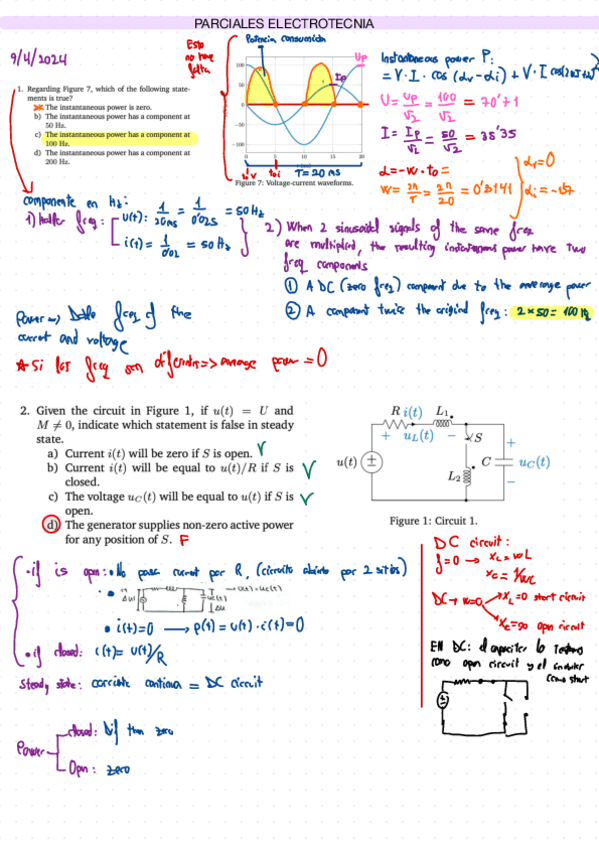 PARCIALES ELECTROTECNIA
9/4/2024
Esto
no hace
falta
Potencia consumida
1. Regarding Figure 7, which of the following state-
ments is true?
The instantaneous power is zero.
b) The instantaneous power has a component at
50 Hz.
c) The instantaneous power has a component at
100 Hz.
d) The instantaneous power has a component at
200 Hz.
100
50
0
-50
-100
Up
Ip
0 5 10 15 20
T = 20 ms
Figure 7: Voltage-current waveforms.
Instantaneous power P:
U = Up/√2 = 100/√2 = 70'71
I = Ip/√2 = 50/√2 = 35'35
α = -w · to =
w = 2π/T = 2π/20 = 0'3141
componente en Hz:
= 50 Hz
i(t) = 1/0'02 = 50 Hz
2) When 2 sinusoidal signals of the same freq
are multiplied, the resulting instantaneous power have two
freq components
① A DC (zero freq) component due to the average power
② A component twice the original freq: 2 x 50 = 100 Hz
Power => Doble freq of the
current and voltage
* Si las freq son diferentes => average power = 0
2. Given the circuit in Figure 1, if u(t) = U and
M ≠ 0, indicate which statement is false in steady
state.
a) Current i(t) will be zero if S is open. V
b) Current i(t) will be equal to u(t)/R if S is V
closed.
c) The voltage uC(t) will be equal to u(t) if S is V
open.
d) The generator supplies non-zero active power
for any position of S. F
R i(t) L1
+ uL(t) - S
u(t) C + uC(t) -
L2
Figure 1: Circuit 1.
· if is open: · No pasa current por R, (circuito abierto por 2 sitios)
· i(t) = 0 → p(t) = u(t) · i(t) = 0
· if closed: i(t) = u(t)/R
Steady state: corriente continua = DC circuit
Power
closed: Dif than zero
Open: zero
DC circuit:
f = 0 → XL = wL
XC = 1/wC
DC → w=0 XL = 0 short circuit
XC = ∞ open circuit
EN DC: el capacitor lo
como open circuit y el
como short